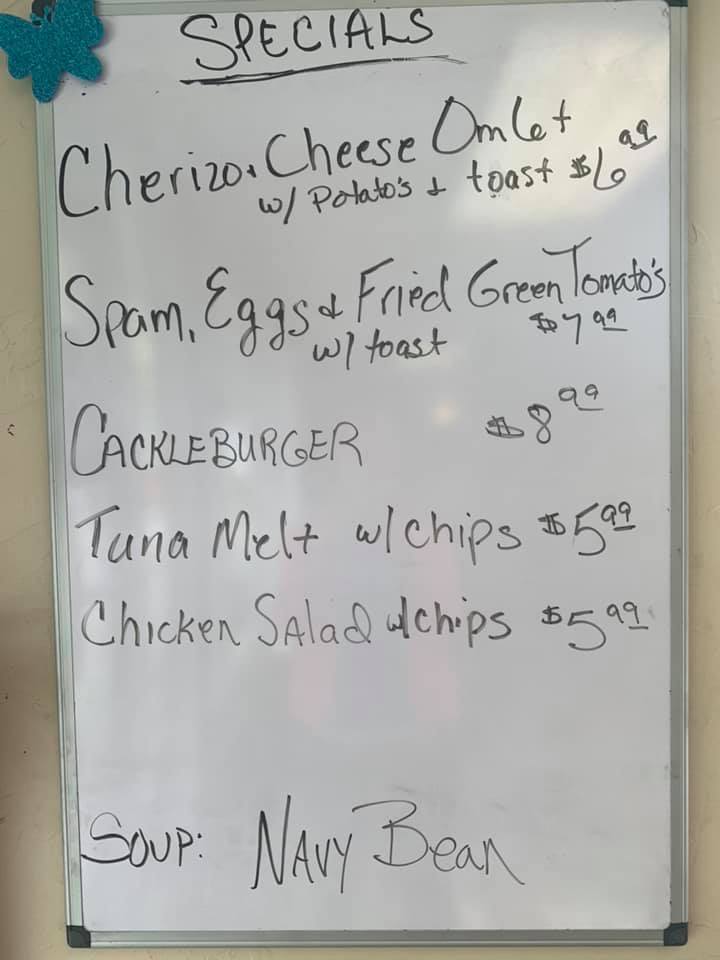 SPECIALS
Cherizo, Cheese Omlet
w/ Potato's & toast $6.99
Spam, Eggs & Fried Green Tomato's
w/ toast $7.99
CACKLEBURGER $8.99
Tuna Melt w/ chips $5.99
Chicken Salad w/ chips $5.99
Soup: Navy Bean